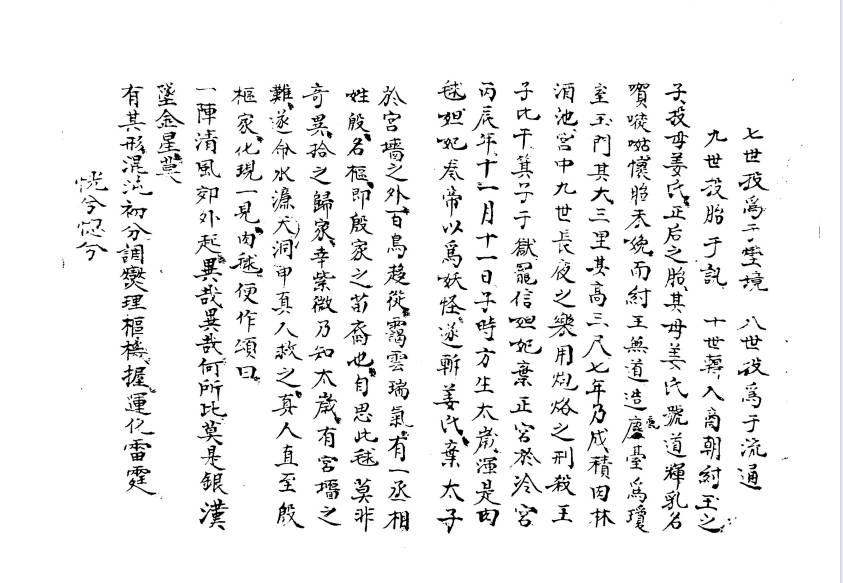 七世投爲于聖境　八世投爲于流通
九世投胎于訊　十世轉入商朝紂王之
子投母姜氏正后之胎其母姜氏號道輝乳名
喫㗋咕懷胎未娩而紂王無道造鹿臺爲瓊
室玉門其大三里其高三尺七年乃成積肉林
酒池宮中九世長夜之樂用炮烙之刑殺王
子比干箕子于獄寵信妲妃棄正宮於冷宮
丙辰年十一月十一日子時方生太歲渾是肉
毬妲妃奏帝以爲妖怪遂斬姜氏棄太子
於宮墻之外百鳥趍從靄雲瑞氣有一丞相
姓殷名樞即殷家之苗裔也自思此毬莫非
奇異拾之歸家幸紫微乃知太歲有宮墻之
難遂命水濂天洞申真人救之真人直至殷
樞家化現一見肉毬便作頌曰
一陣清風郊外起異哉異哉何所比莫是銀漢
墜金星莫
有其形混沌初分調燮理樞機握運化雷霆
恍兮惚兮